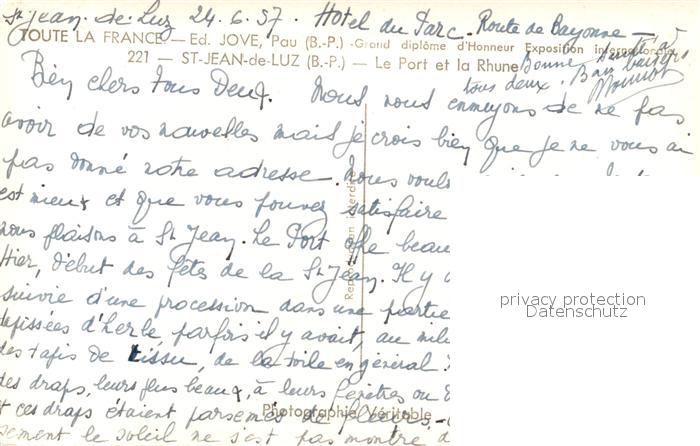 St Jean-de-Luz 24.6.57. Hotel du Parc. Route de Bayonne —
TOUTE LA FRANCE — Ed. JOVE, Pau (B.-P.) - Grand diplôme d'Honneur Exposition
221 — ST-JEAN-de-LUZ (B.-P.) — Le Port et la Rhune
Bonne santé à
tous deux. Bons baisers
Bien chers tous Deux. Nous nous ennuyons de ne pas
avoir de vos nouvelles mais je crois bien que je ne vous ai
pas donné notre adresse. Nous
est mieux et que vous pouvez satisfaire
nous plaisons à St Jean. Le Port offre beau
Hier, début des fêtes de la St Jean. Il y a
suivie d'une procession dans une partie
tapissées d'herbe parfois il y avait, au mil
des tapis de tissu, de la toile en général
des draps, leurs plus beaux, à leurs fenêtres ou
et ces draps étaient parsemés de fleurs.
sement le soleil ne s'est pas montré d
Reproduction interdite
Photographie Véritable
privacy protection
Datenschutz